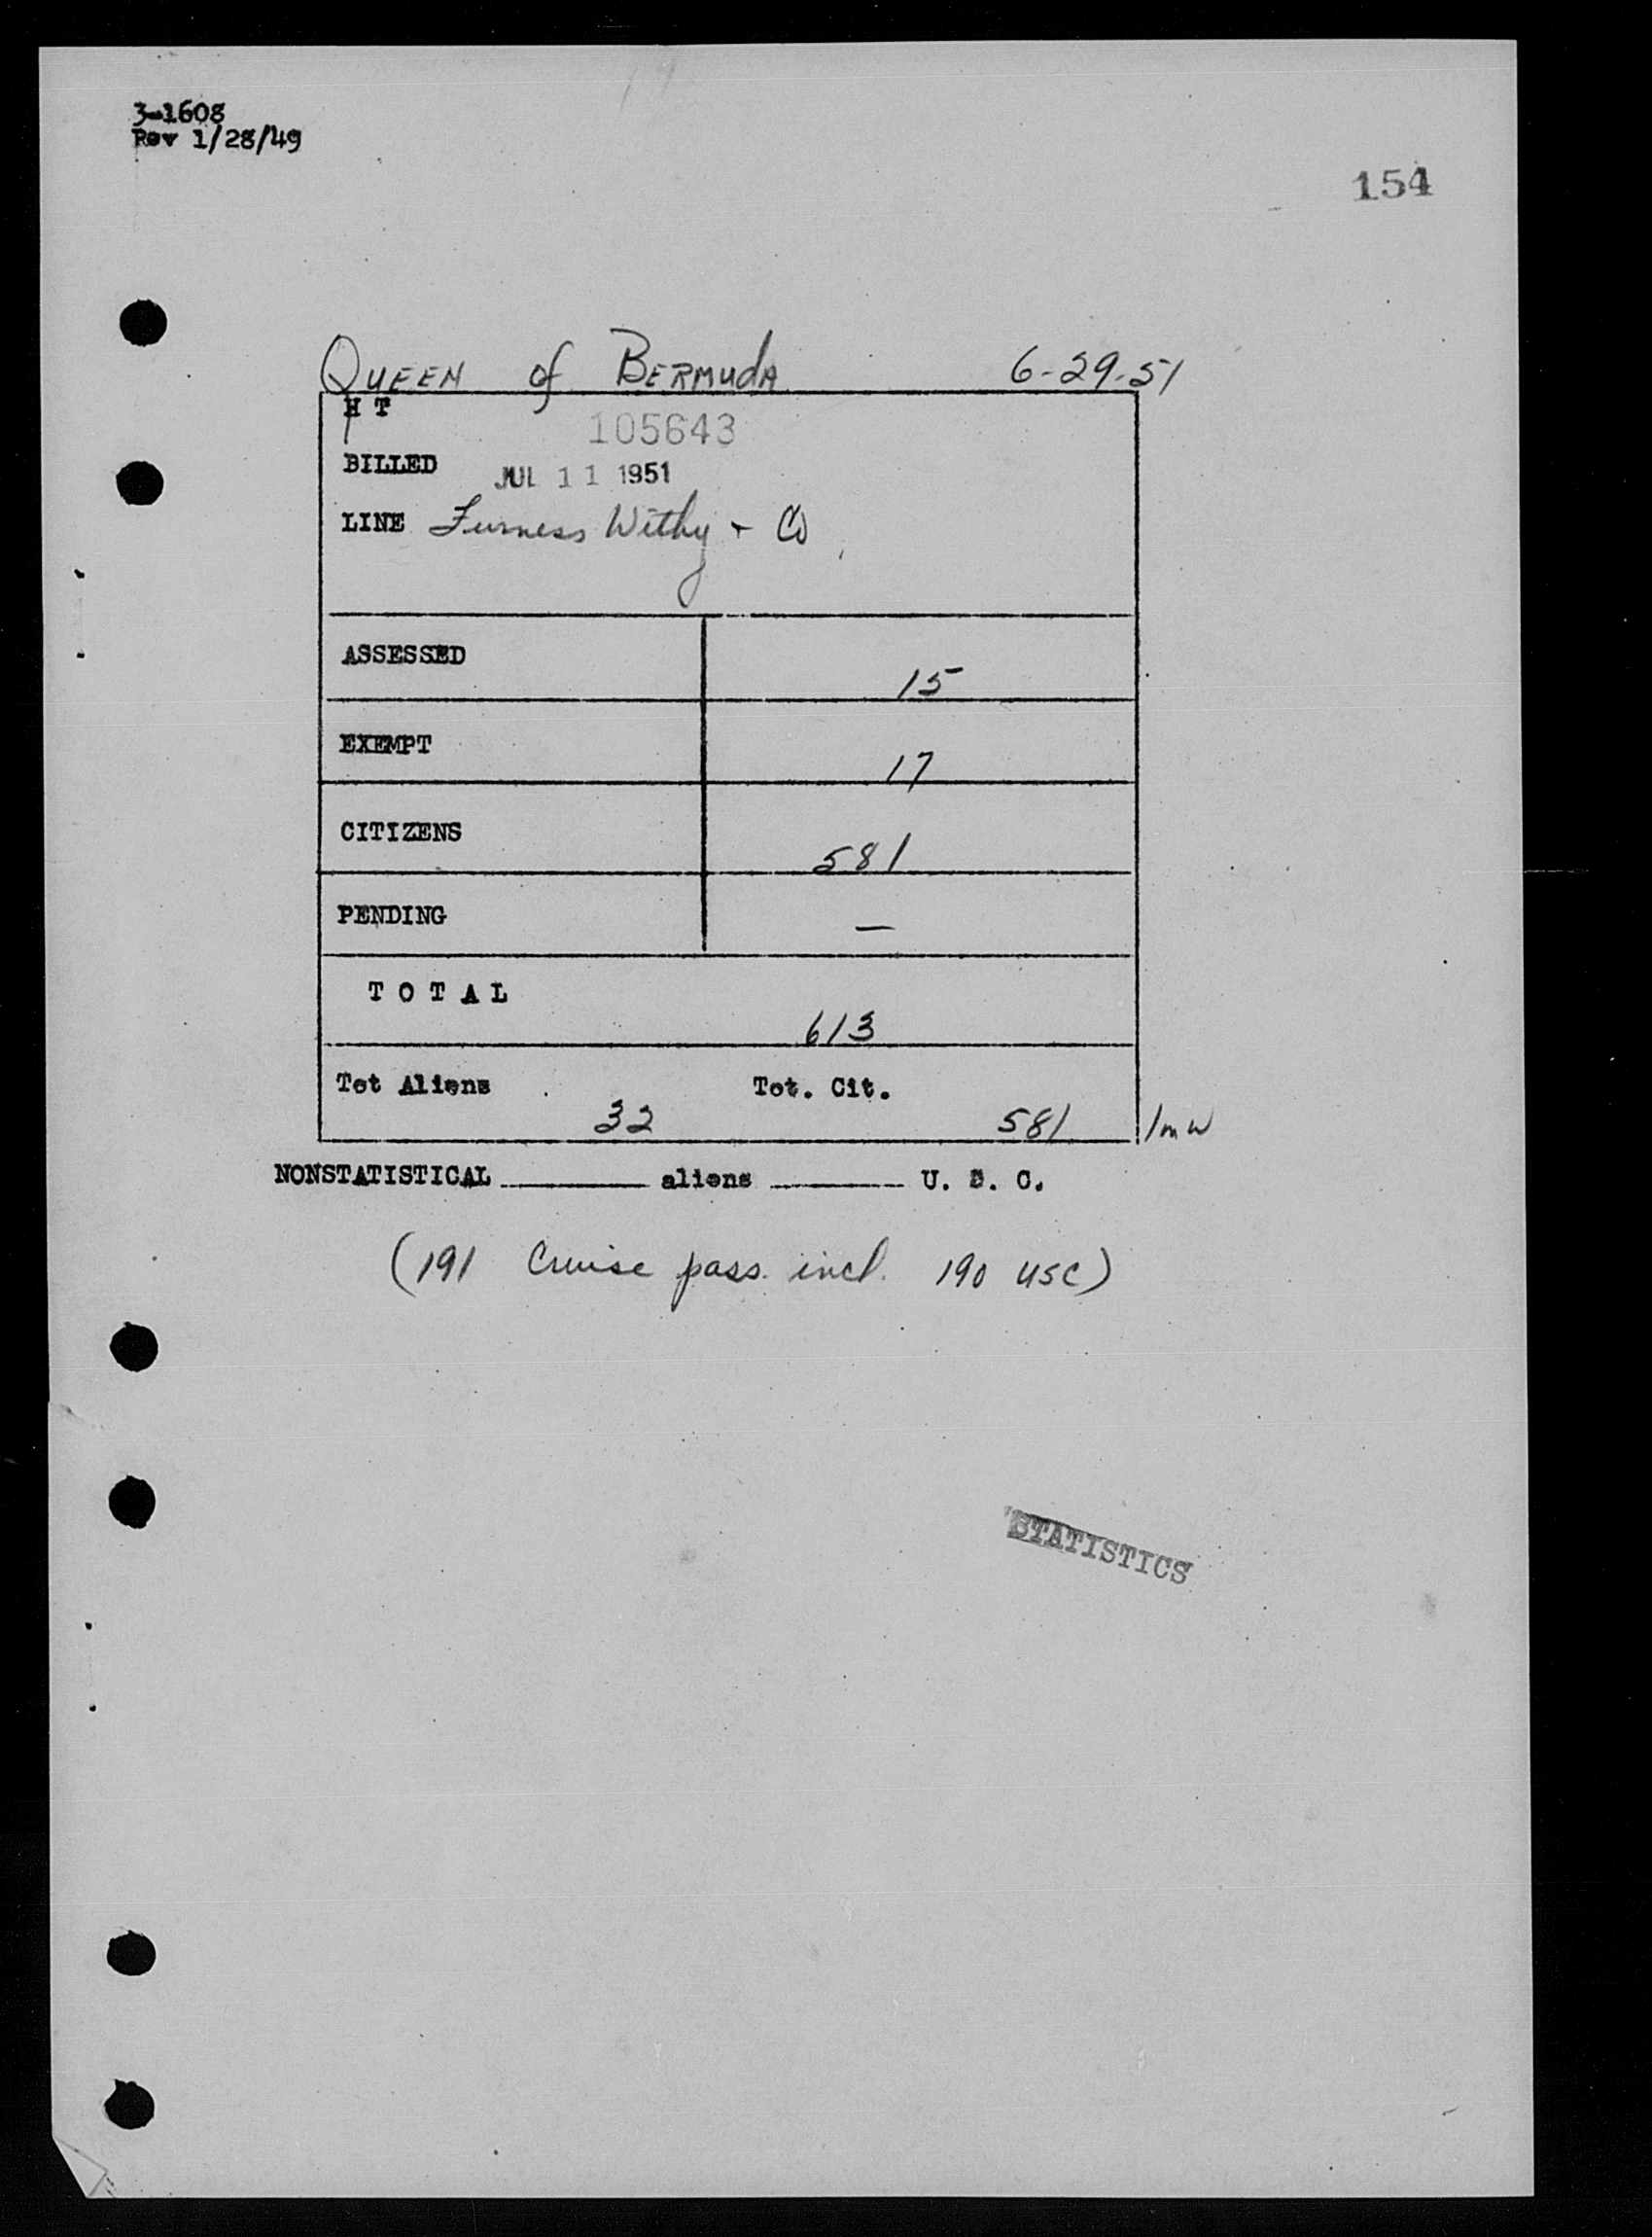 3-1608
Rev 1/28/49
154
QUEEN of BERMUdA 6-29-51
H T
105643
BILLED JUL 11 1951
LINE Furness Withy + Co
ASSESSED 15
EXEMPT 17
CITIZENS 581
PENDING —
T O T A L
613
Tot Aliens Tot. Cit.
32 581 /mw
NONSTATISTICAL ______ aliens ______ U. S. C.
(191 Cruise pass. incl. 190 USC)
STATISTICS